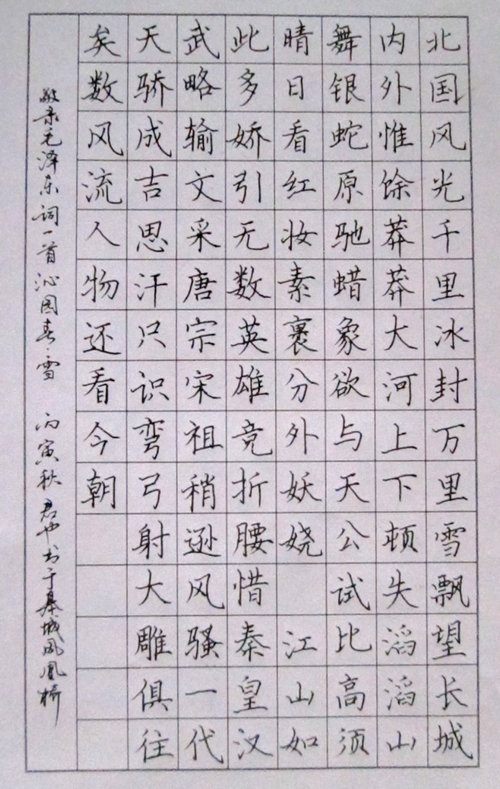 北国风光千里冰封万里雪飘望长城
内外惟馀莽莽大河上下顿失滔滔山
舞银蛇原驰蜡象欲与天公试比高须
晴日看红妆素裹分外妖娆 江山如
此多娇引无数英雄竞折腰惜秦皇汉
武略输文采唐宗宋祖稍逊风骚一代
天骄成吉思汗只识弯弓射大雕俱往
矣数风流人物还看今朝
敬录毛泽东词一首沁园春·雪 丙寅秋 书于秦城凤凰桥